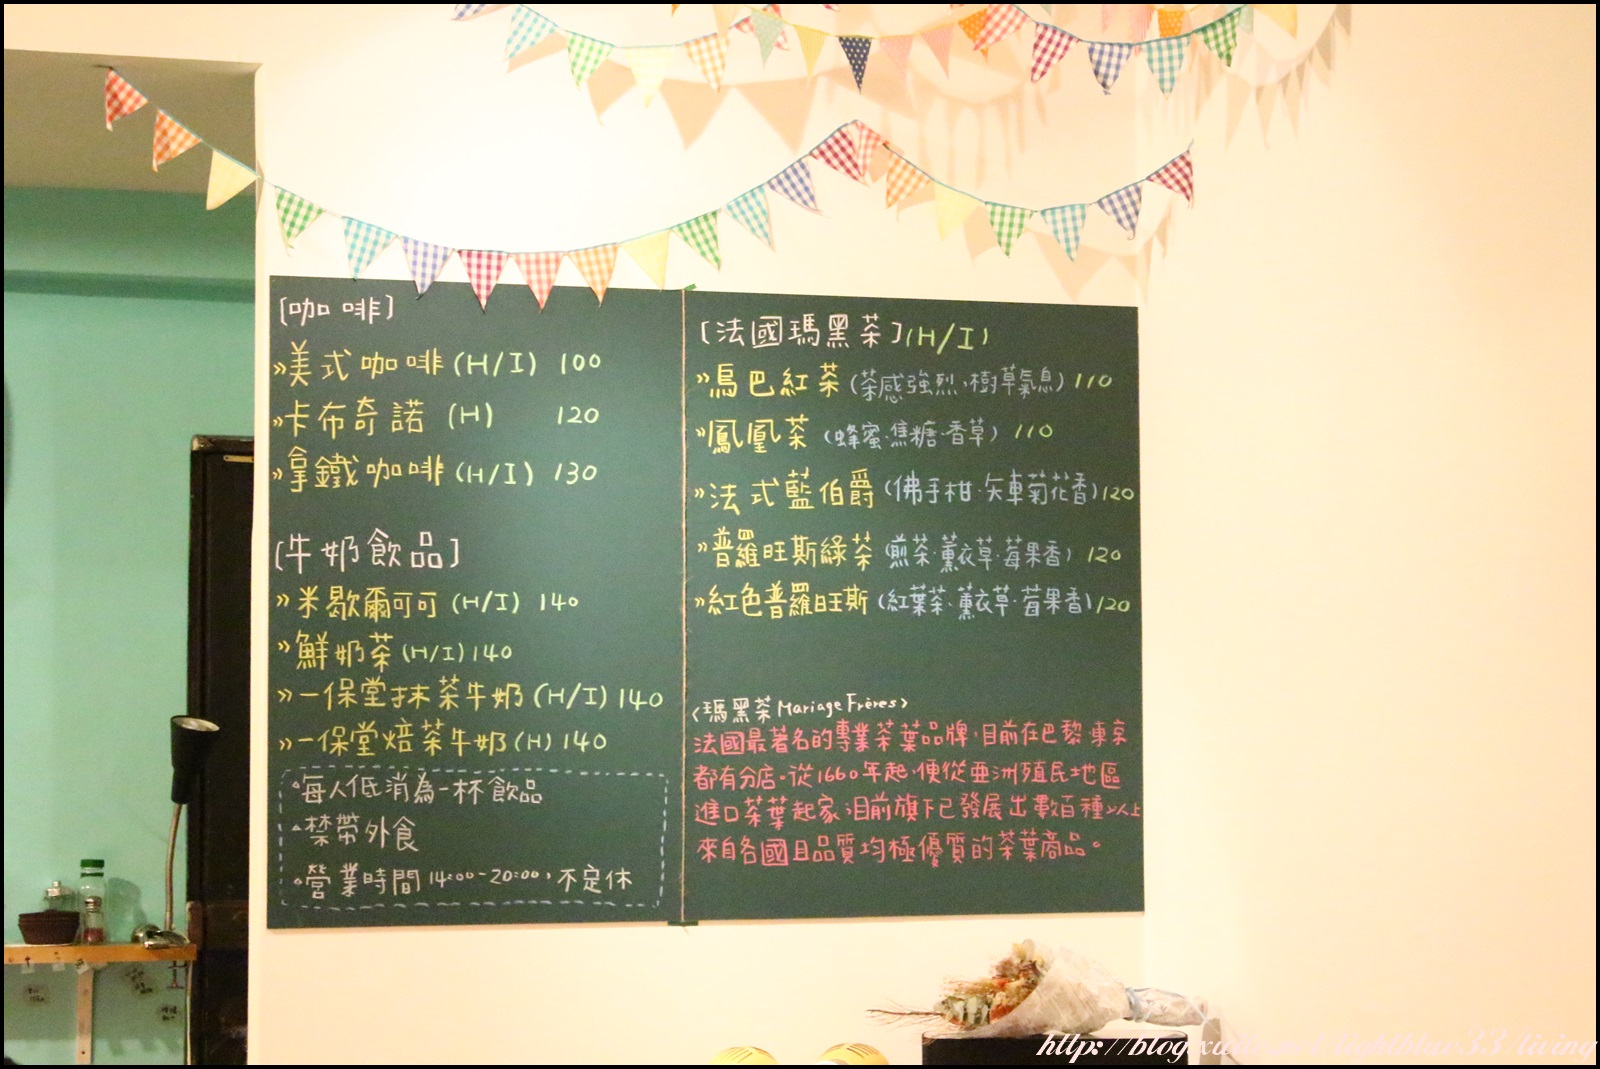 [咖啡]
»美式咖啡(H/I) 100
»卡布奇諾 (H) 120
»拿鐵咖啡(H/I) 130
[牛奶飲品]
»米歇爾可可(H/I) 140
»鮮奶茶(H/I)140
»一保堂抹茶牛奶(H/I)140
»一保堂焙茶牛奶(H)140
。每人低消為一杯飲品
。禁帶外食
。營業時間14:00-20:00,不定休
[法國瑪黑茶](H/I)
»烏巴紅茶(茶感強烈,樹草氣息)110
»鳳凰茶(蜂蜜.焦糖.香草)110
»法式藍伯爵(佛手柑.矢車菊花香)120
»普羅旺斯綠茶(煎茶.薰衣草.莓果香)120
»紅色普羅旺斯(紅葉茶.薰衣草.莓果香)120
<瑪黑茶Mariage Frères>
法國最著名的專業茶葉品牌,目前在巴黎.東京
都有分店。從1660年起,便從亞洲殖民地區
進口茶葉起家,目前旗下已發展出數百種以上
來自各國且品質均極優質的茶葉商品。